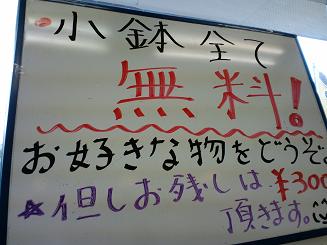 小鉢全て
無料!
お好きな物をどうぞ。
※但しお残しは¥300
頂きます。